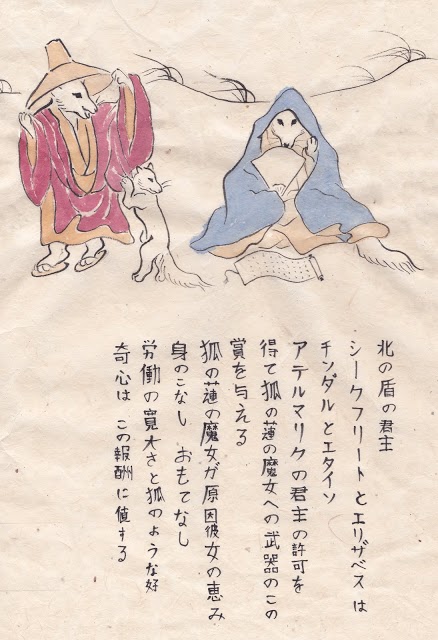 北の盾の君主
シークフリートとエリザベスは
チンダルとエタイン
アテルマリクの君主の許可を
得て狐の蓮の魔女への武器のこの
賞を与える
狐の蓮の魔女が原因彼女の恵み
身のこなし おもてなし
労働の寛大さと狐のような好
奇心は この報酬に値する